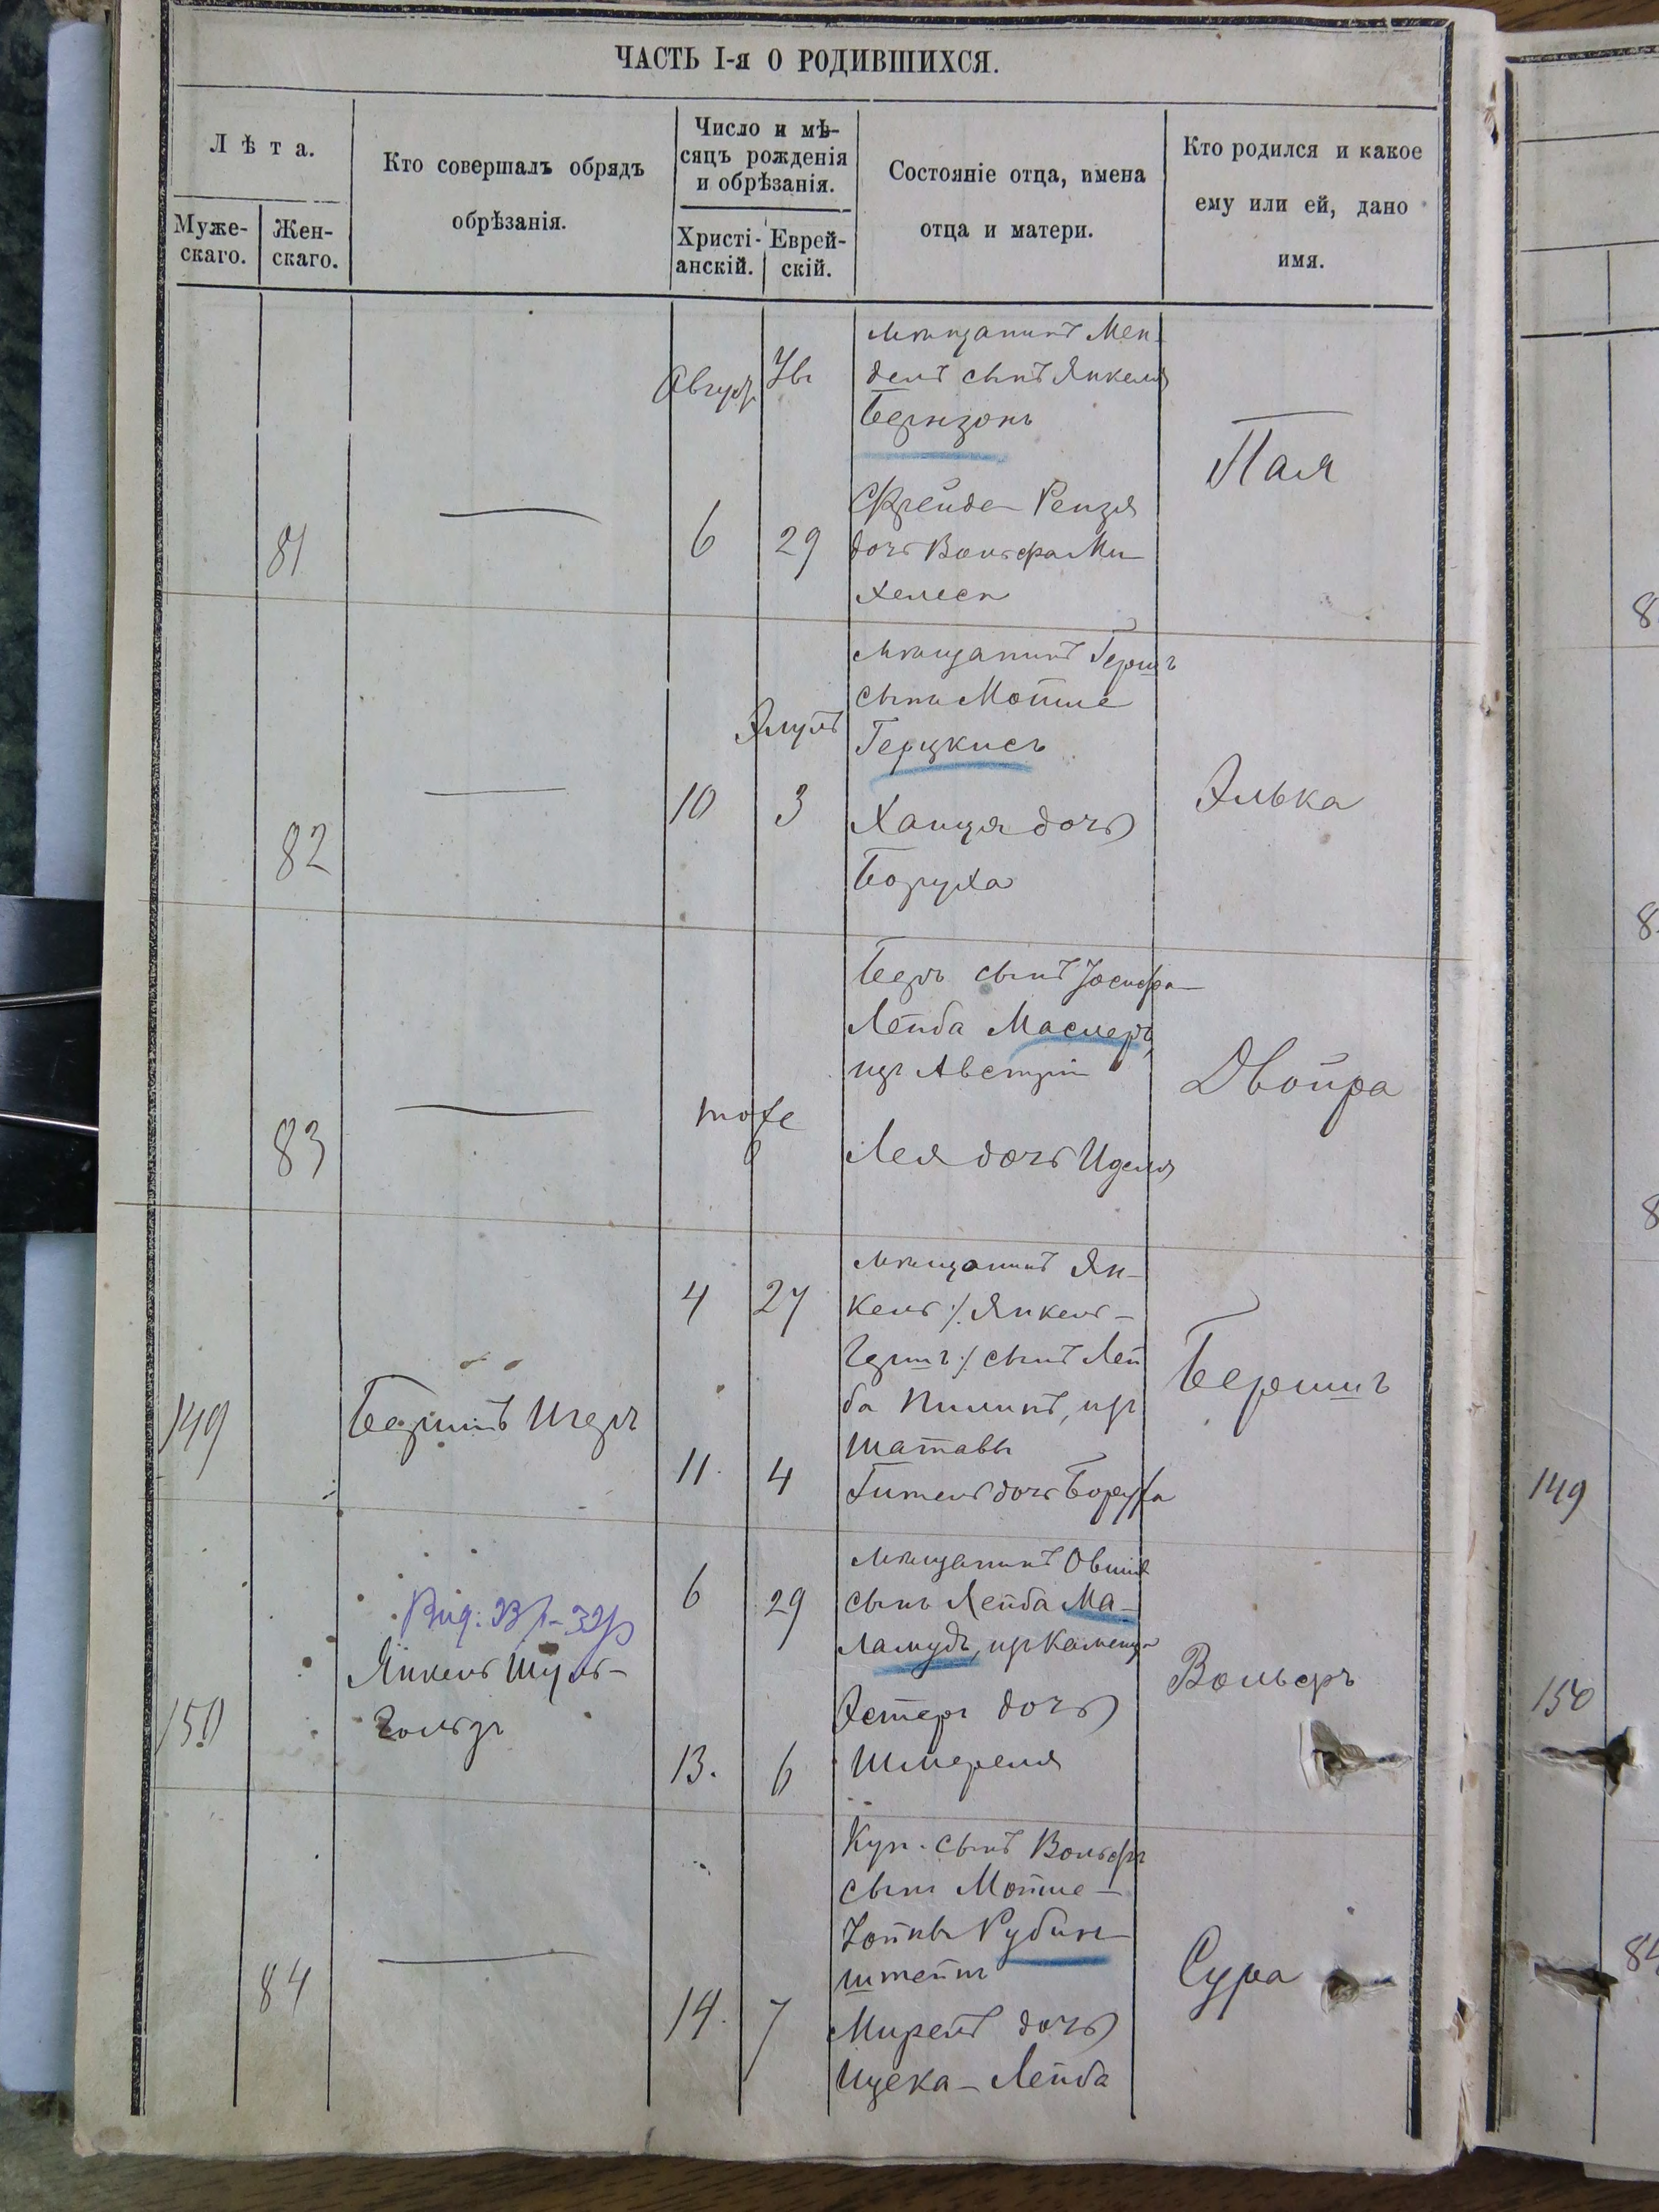 ЧАСТЬ I-я О РОДИВШИХСЯ.
Лѣта.
Муже-
скаго.
Жен-
скаго.
Кто совершалъ обрядъ
обрѣзанія.
Число и мѣ-
сяцъ рожденія
и обрѣзанія.
Христі-
анскій.
Еврей-
скій.
Состояніе отца, имена
отца и матери.
Кто родился и какое
ему или ей, дано
имя.
81
—
Август
6
29
мещанинъ Мен-
дель сынъ Янкеля
Бернзонъ
Фрейде-Рейзя
дочь Вольфа Ми-
хелеса
Пая
82
—
10
Элулъ
3
мещанинъ Гершъ
сынъ Мотше
Герцкисъ
Ханця дочь
Боруха
Элька
83
—
тоже
Беръ сынъ Іосифа-
Лейба Маслеръ,
изъ Австріи
Лея дочь Иделя
Двойра
149
4
27
11.
4
мещанинъ Ян-
кель /: Янкель-
Гершъ :/ сынъ Лей
ба , изъ
Шатавы
Гитель дочь Боруха
Бершъ
150
Янкель Шуль-
гользъ
6
29
13.
6
мещанинъ Овшій
сынъ Лейба Ма-
ламудъ, изъ Каменца
Эстеръ дочь
Шмереля
Вольфъ
84
—
14.
7
Куп. сынъ Вольфъ
сынъ Мотше-
Іойны Рубин-
штейнъ
Мирель дочь
Ицека-Лейба
Сура
149
150
84